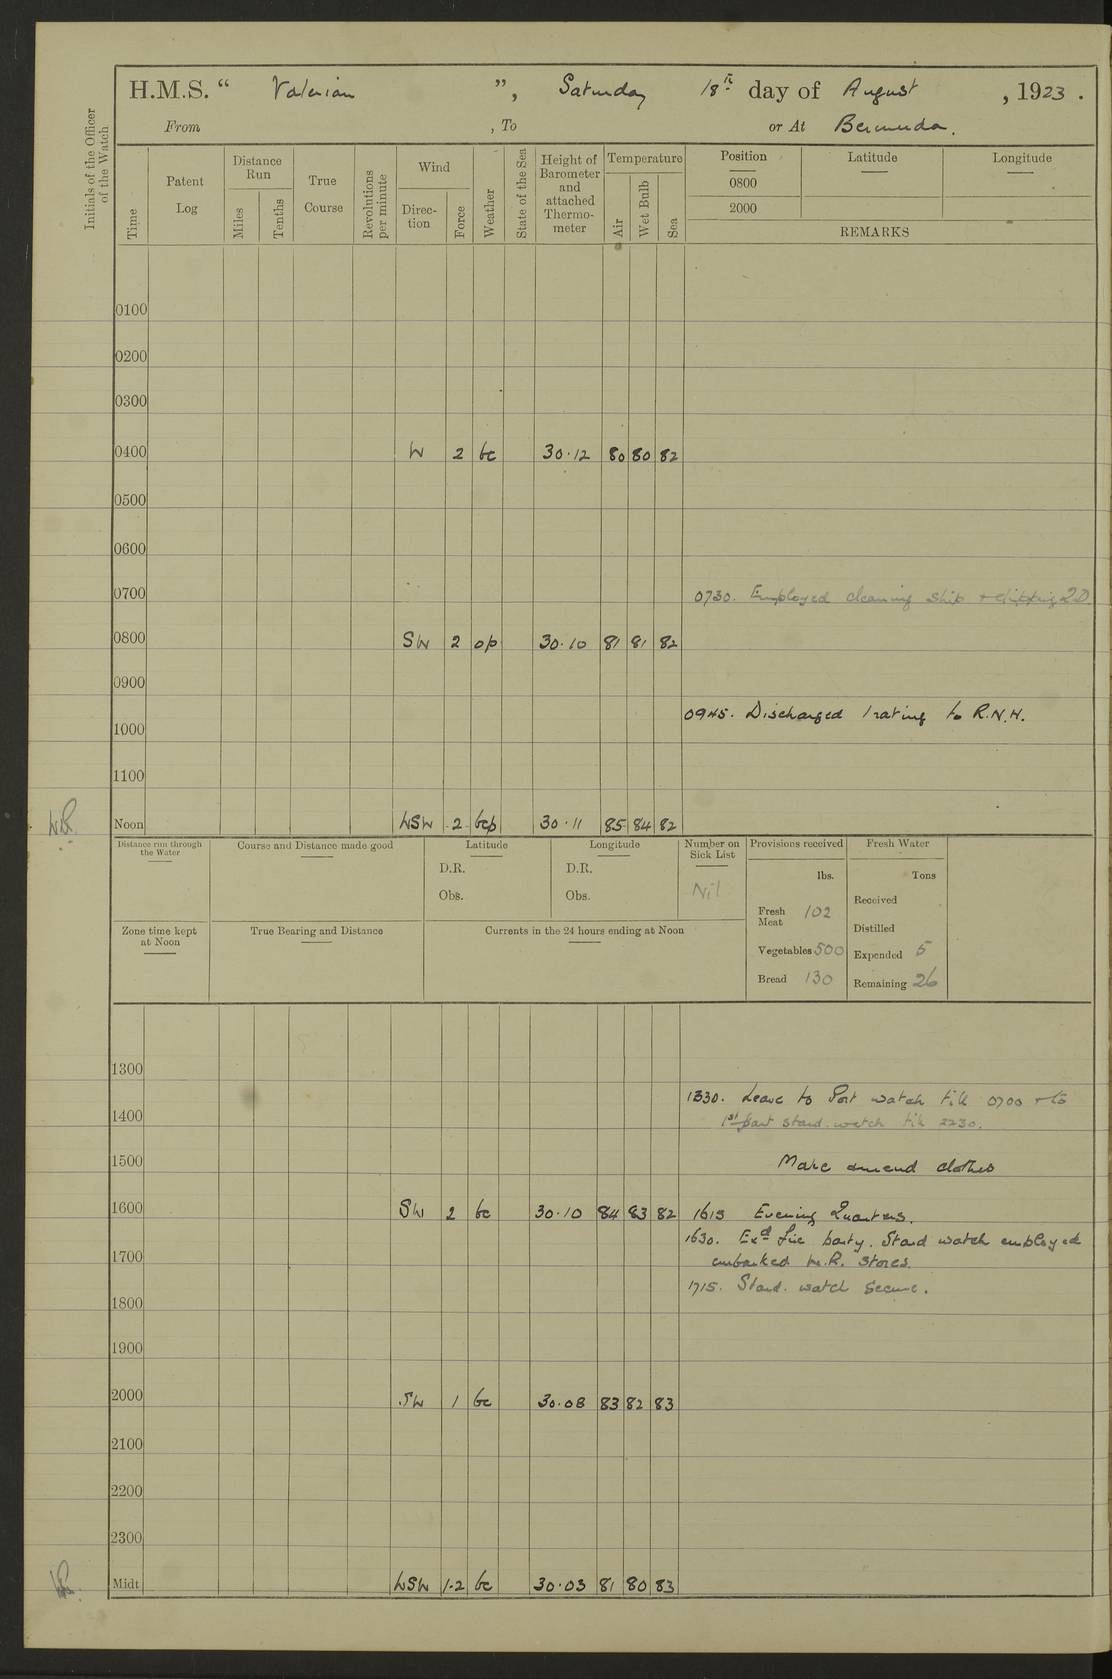 H.M.S. “ Valerian ”, Saturday 18th day of August, 1923.
From , To or At Bermuda.
Initials of the Officer of the Watch
Time
Patent Log
Distance Run
Miles
Tenths
True Course
Revolutions per minute
Wind
Direction
Force
Weather
State of the Sea
Height of Barometer and attached Thermometer
Temperature
Air
Wet Bulb
Sea
Position
0800
2000
Latitude
Longitude
REMARKS
0100
0200
0300
0400 W 2 bc 30.12 80 80 82
0500
0600
0700 0730. Employed cleaning ship + chipping QD.
0800 SW 2 op 30.10 81 81 82
0900
0945. Discharged 1 rating to R.N.H.
1000
1100
Noon WSW 2 bcp 30.11 85 84 82
Distance run through the Water
Course and Distance made good
Latitude
D.R.
Obs.
Longitude
D.R.
Obs.
Number on Sick List
Nil
Provisions received
lbs.
Fresh Meat 102
Vegetables 500
Bread 130
Fresh Water
Tons
Received
Distilled
Expended 5
Remaining 26
Zone time kept at Noon
True Bearing and Distance
Currents in the 24 hours ending at Noon
1300
1330. Leave to Port watch till 0700 + to
1400 1st part stard. watch till 2230.
1500 Make amend clothes
1600 SW 2 bc 30.10 84 83 82 1615 Evening Quarters.
1630. Exd fire party. Stard watch employed
1700 embarked stores.
1715. Stard. watch secure.
1800
1900
2000 SW 1 bc 30.08 83 82 83
2100
2200
2300
Midt WSW 1-2 bc 30.03 81 80 83